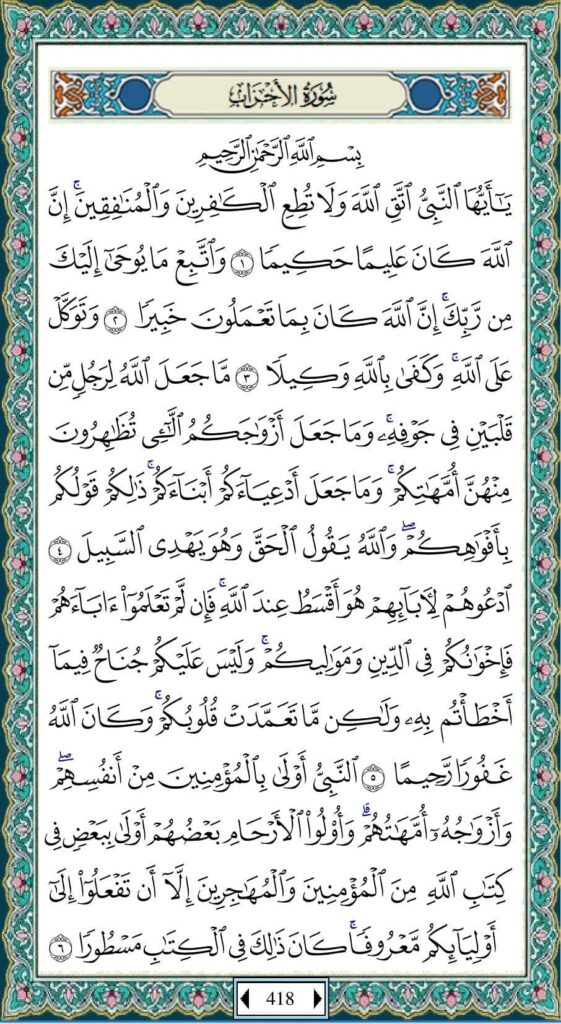 سُورَةُ الأَحْزَابِ
بِسْمِ ٱللَّهِ ٱلرَّحْمَٰنِ ٱلرَّحِيمِ
يَٰٓأَيُّهَا ٱلنَّبِيُّ ٱتَّقِ ٱللَّهَ وَلَا تُطِعِ ٱلْكَٰفِرِينَ وَٱلْمُنَٰفِقِينَۚ إِنَّ
ٱللَّهَ كَانَ عَلِيمًا حَكِيمًا ١ وَٱتَّبِعْ مَا يُوحَىٰٓ إِلَيْكَ
مِن رَّبِّكَۚ إِنَّ ٱللَّهَ كَانَ بِمَا تَعْمَلُونَ خَبِيرًا ٢ وَتَوَكَّلْ
عَلَى ٱللَّهِۚ وَكَفَىٰ بِٱللَّهِ وَكِيلًا ٣ مَّا جَعَلَ ٱللَّهُ لِرَجُلٍ مِّن
قَلْبَيْنِ فِي جَوْفِهِۦۚ وَمَا جَعَلَ أَزْوَٰجَكُمُ ٱلَّٰٓـِٔي تُظَٰهِرُونَ
مِنْهُنَّ أُمَّهَٰتِكُمْۚ وَمَا جَعَلَ أَدْعِيَآءَكُمْ أَبْنَآءَكُمْۚ ذَٰلِكُمْ قَوْلُكُم
بِأَفْوَٰهِكُمْۖ وَٱللَّهُ يَقُولُ ٱلْحَقَّ وَهُوَ يَهْدِي ٱلسَّبِيلَ ٤
ٱدْعُوهُمْ لِأٓبَآئِهِمْ هُوَ أَقْسَطُ عِندَ ٱللَّهِۚ فَإِن لَّمْ تَعْلَمُوٓا۟ ءَابَآءَهُمْ
فَإِخْوَٰنُكُمْ فِي ٱلدِّينِ وَمَوَٰلِيكُمْۚ وَلَيْسَ عَلَيْكُمْ جُنَاحٌ فِيمَآ
أَخْطَأْتُم بِهِۦ وَلَٰكِن مَّا تَعَمَّدَتْ قُلُوبُكُمْۚ وَكَانَ ٱللَّهُ
غَفُورًا رَّحِيمًا ٥ ٱلنَّبِيُّ أَوْلَىٰ بِٱلْمُؤْمِنِينَ مِنْ أَنفُسِهِمْۖ
وَأَزْوَٰجُهُۥٓ أُمَّهَٰتُهُمْۗ وَأُو۟لُوا۟ ٱلْأَرْحَامِ بَعْضُهُمْ أَوْلَىٰ بِبَعْضٍ فِي
كِتَٰبِ ٱللَّهِ مِنَ ٱلْمُؤْمِنِينَ وَٱلْمُهَٰجِرِينَ إِلَّآ أَن تَفْعَلُوٓا۟ إِلَىٰٓ
أَوْلِيَآئِكُم مَّعْرُوفًاۚ كَانَ ذَٰلِكَ فِي ٱلْكِتَٰبِ مَسْطُورًا ٦
418